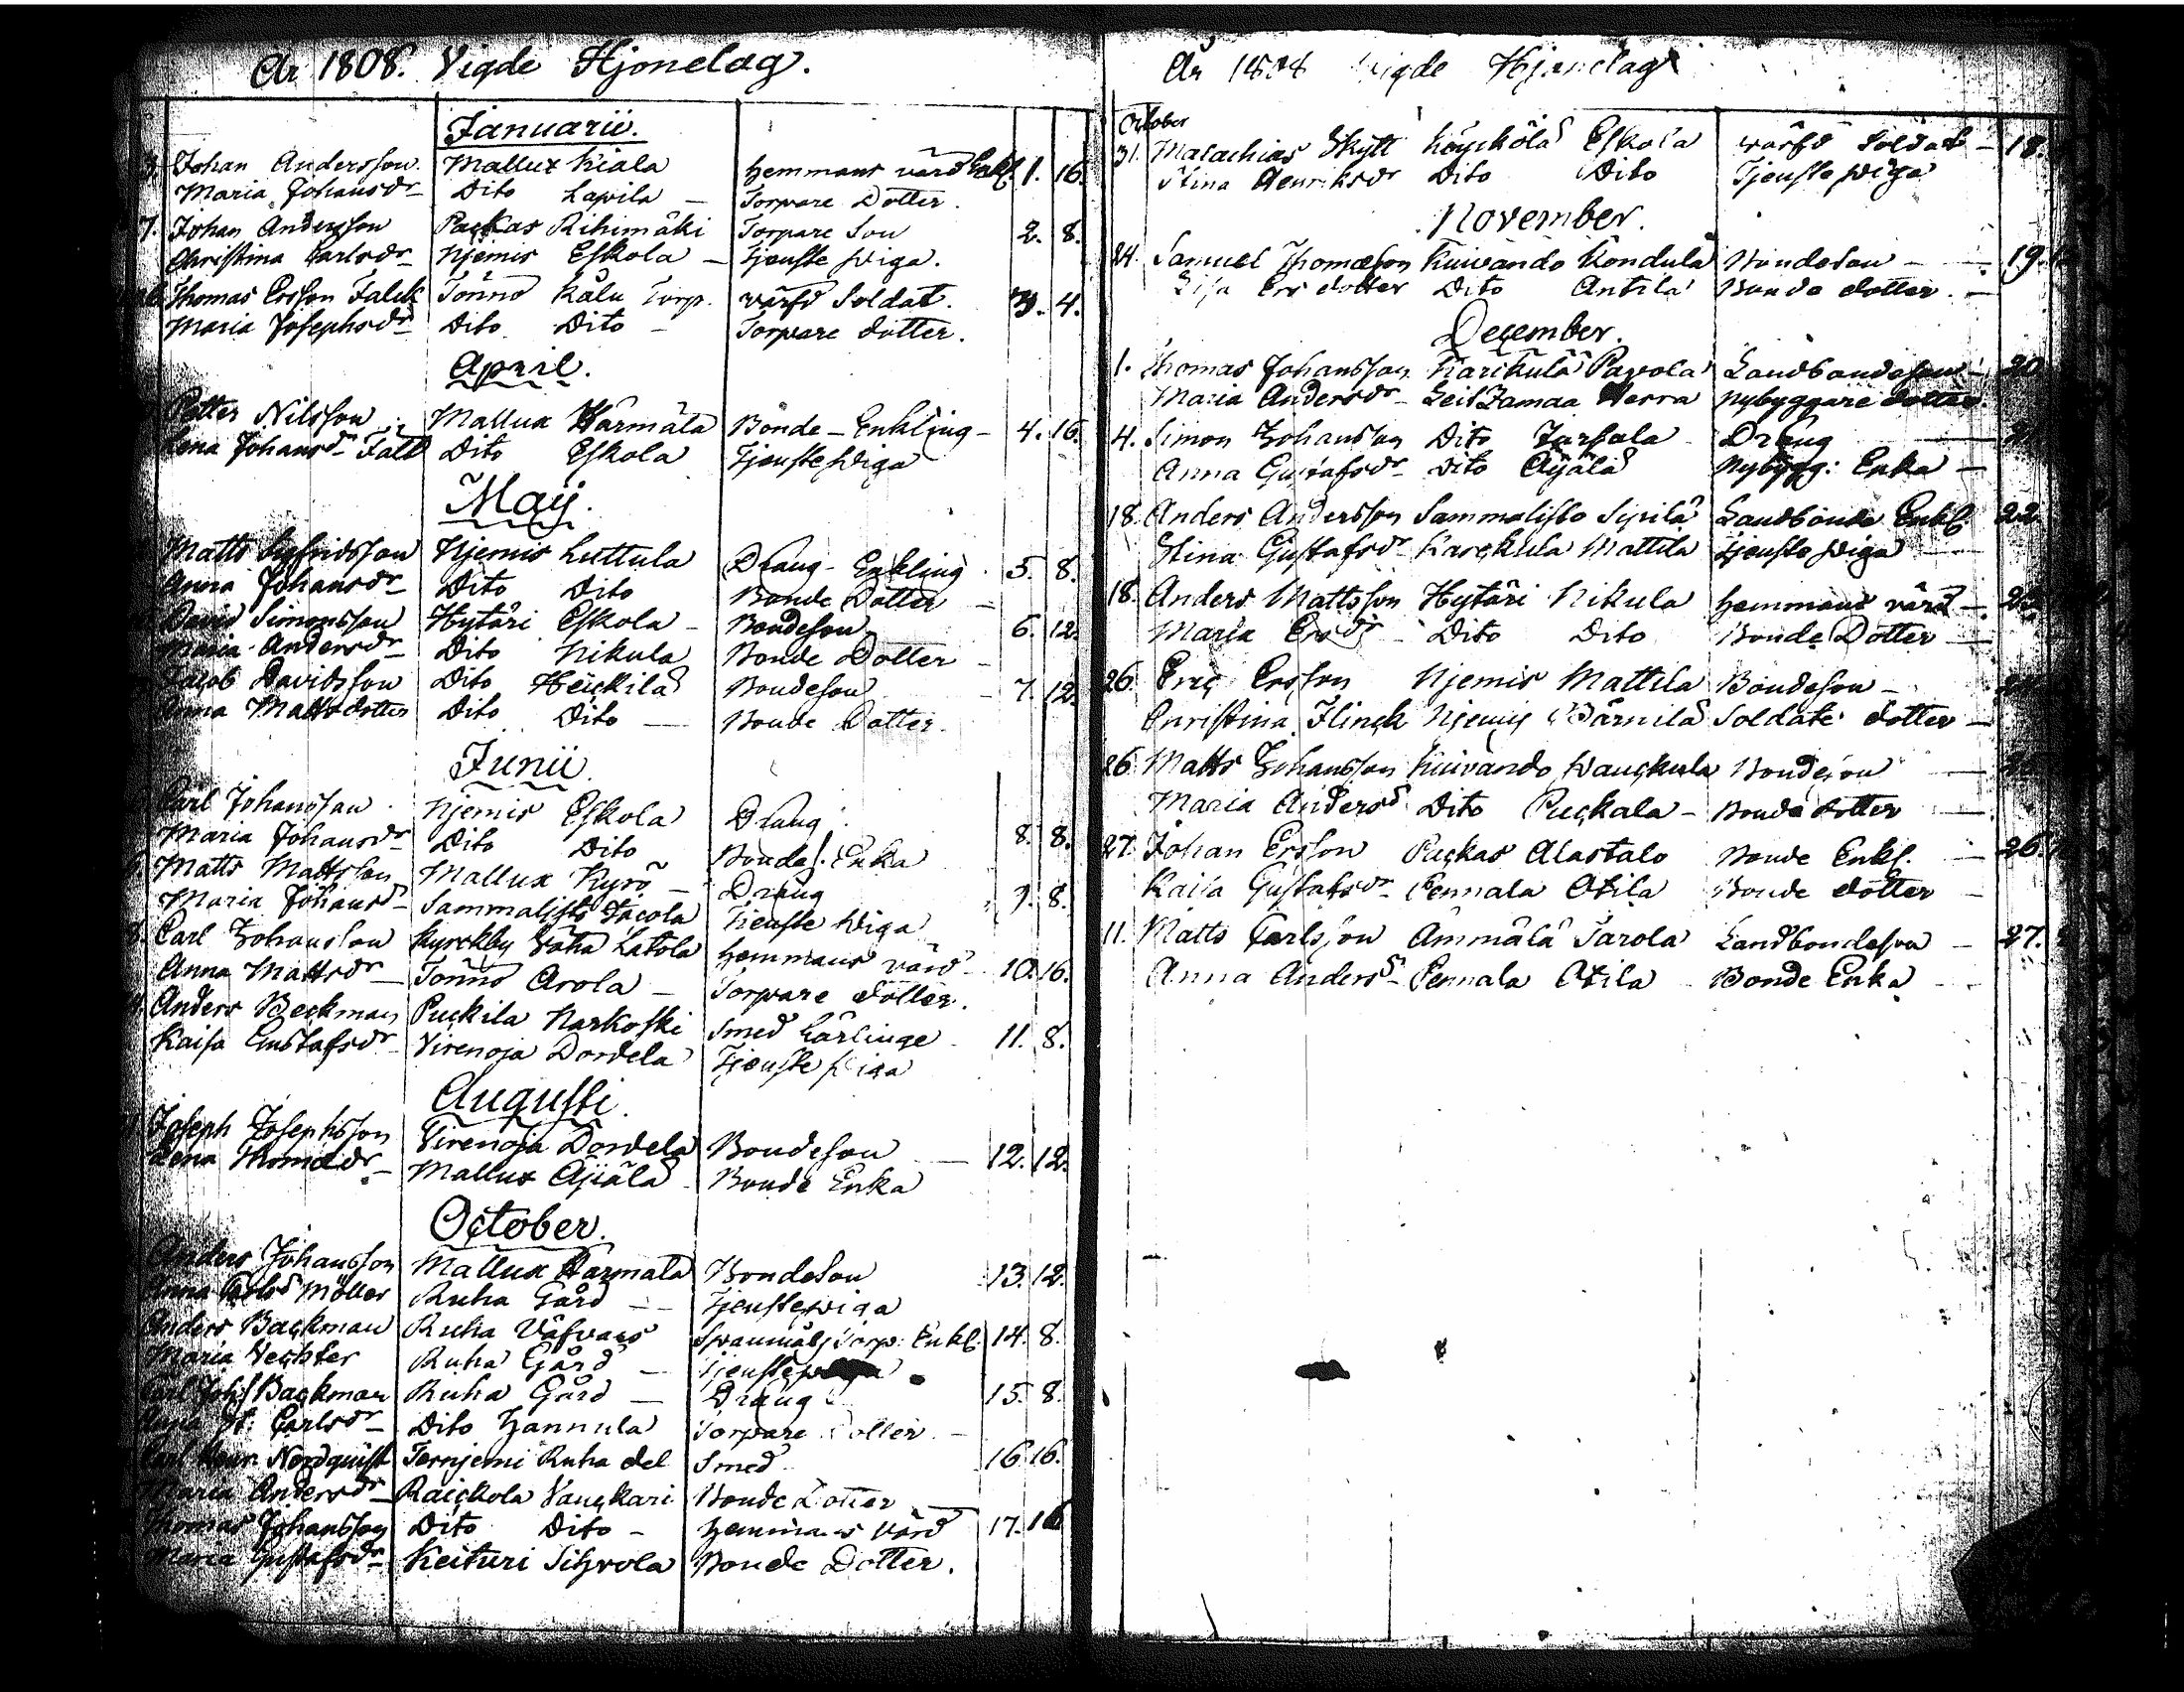 År 1808. Vigde Hjonelag.
Januarii.
Johan Andersson. Mallux Kiala Hemmans värd Enkl. 1. 16.
Maria Johansdr Dito Lapila Torpare Dotter.
7. Johan Andersson Packas Rihimäki Torpare Son 2. 8.
Christina Carlsdr Njemis Eskola Tjenste piga.
Thomas Ersson Falck Tönnö Kälu Torp. värfd Soldat. 3. 4.
Maria Josephsdr Dito Dito Torpare dotter.
April.
Petter Nilsson Mallux Härmälä Bonde-Enkling 4. 16.
Lena Johansdr Falck Dito Eskola Tjenste piga
Maij.
Matts Sigfridsson Njemis Luttula Dräng-Enkling 5. 8.
Anna Johansdr Dito Dito Bonde Dotter
David Simonsson Hytäri Eskola Bondeson 6. 12.
Maria Andersdr Dito Nikula Bonde Dotter
Jacob Davidsson Dito Heickilä Bondeson 7. 12.
Anna Mattsdotter Dito Dito Bonde Dotter.
Junii
Carl Johansson Njemis Eskola Dräng
Maria Johansdr Dito Dito Bondes. Enka 8. 8.
Matts Mattsson Mallux Kyrö Dräng
Maria Johansdr Sammalisto Jacola Tjenste piga 9. 8.
8. Carl Johansson Kyrckby Väha Latola Hemmans värd 10. 16.
Anna Mattsdr Tönnö Arola Torpare dotter.
Anders Beckman Puckila Karkoski Smed Lärlinge 11. 8.
Kaisa Gustafsdr Virenoja Dordela Tjenste piga
Augusti.
Joseph Josephsson Virenoja Dordela Bondeson 12. 12.
Lena Thomædr Mallux Äjälä Bonde Enka
October.
Anders Johansson Mallux Härmälä Bondeson 13. 12.
Anna Carlsd Möller Ruha Gård Tjenstepiga
Anders Backman Ruha Väfvars Torp: Enkl. 14. 8.
Maria Vechter Ruha Gård
Carl Johs Backman Ruha Gård Dräng 15. 8.
Anna St: Carlsdr Dito Hannula Torpare Dotter
Carl Henr Nordquist Ternjemi Ruha del Smed 16. 16.
Maria Andersdr Raickola Vanckari Bonde Dotter
Thomas Johansson Dito Dito Hemmans värd 17. 16
Maria Gustafsdr Keituri Sihvola Bonde Dotter.
År 1808 Vigde Hjonelag
October
31. Malachias Skytt Köyckölä Eskola värfd Soldat 18.
Stina Henriksdr Dito Dito Tjenste piga
November.
24. Samuel Thomæson Kuivando Köndula Bondeson 19.
Lisa Ers dotter Dito Antila Bonde dotter.
December.
1. Thomas Johansson Karikulä Pavola Landbondeson 20
Maria Andersdr Leitzamaa Herra Nybyggare dotter.
4. Simon Johansson Dito Jussala Dräng 21
Anna Gustafsdr Dito Äjälä Nybygg: Enka
18. Anders Andersson Sammalisto Sipilä Landbonde Enkl. 22
Stina Gustafsdr Karckula Mattila Tjenste piga
18. Anders Mattsson Hytäri Nikula Hemmans värd
Maria Ersdr Dito Dito Bonde Dotter
26. Eric Ersson Njemis Mattila Bondeson
Christina Flinck Njemis Pärnilä Soldate dotter
26. Matts Johansson Kuivando Wanckula Bondeson
Maria Andersd Dito Puckala Bonde dotter
27. Johan Ersson Puckas Alastalo Bonde Enkl. 26.
Kaisa Gustafsdr Pennala Otila Bonde dotter
11. Matts Carlsson Ämmälä Jarola Landbondeson 27.
Anna Andersd Pennala Otila Bonde Enka